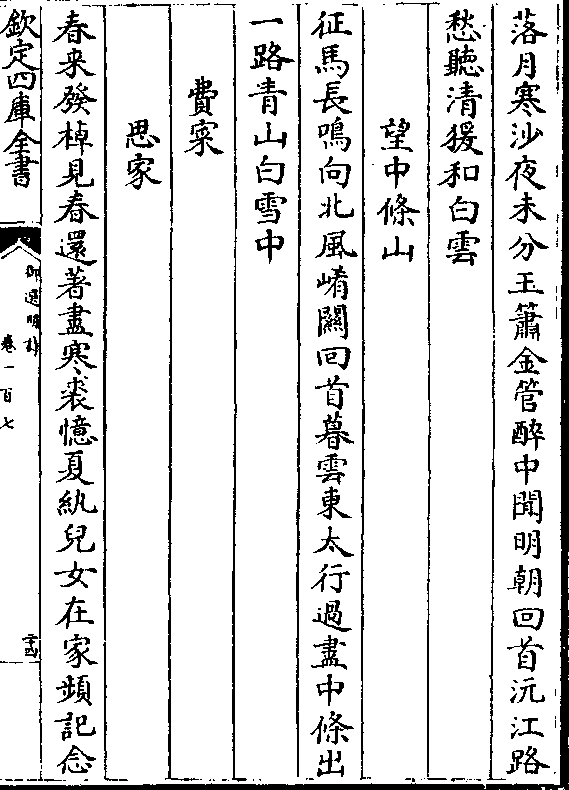 落月寒沙夜未分玉簫金管醉中聞明朝回首沅江路
愁聽清猨和白雲
望中條山
征馬長鳴向北風崤關回首暮雲東太行過盡中條出
一路青山白雪中
費寀
思家
春来發棹見春還著盡寒裘憶夏紈兒女在家頻記念
欽定四庫全書
御選明詩
卷一百七
二十四